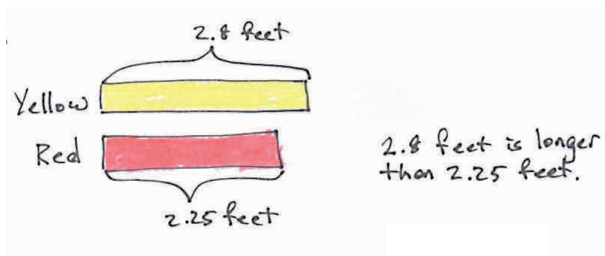 2.8 feet
Yellow
Red
2.25 feet
2.8 feet is longer
than 2.25 feet.